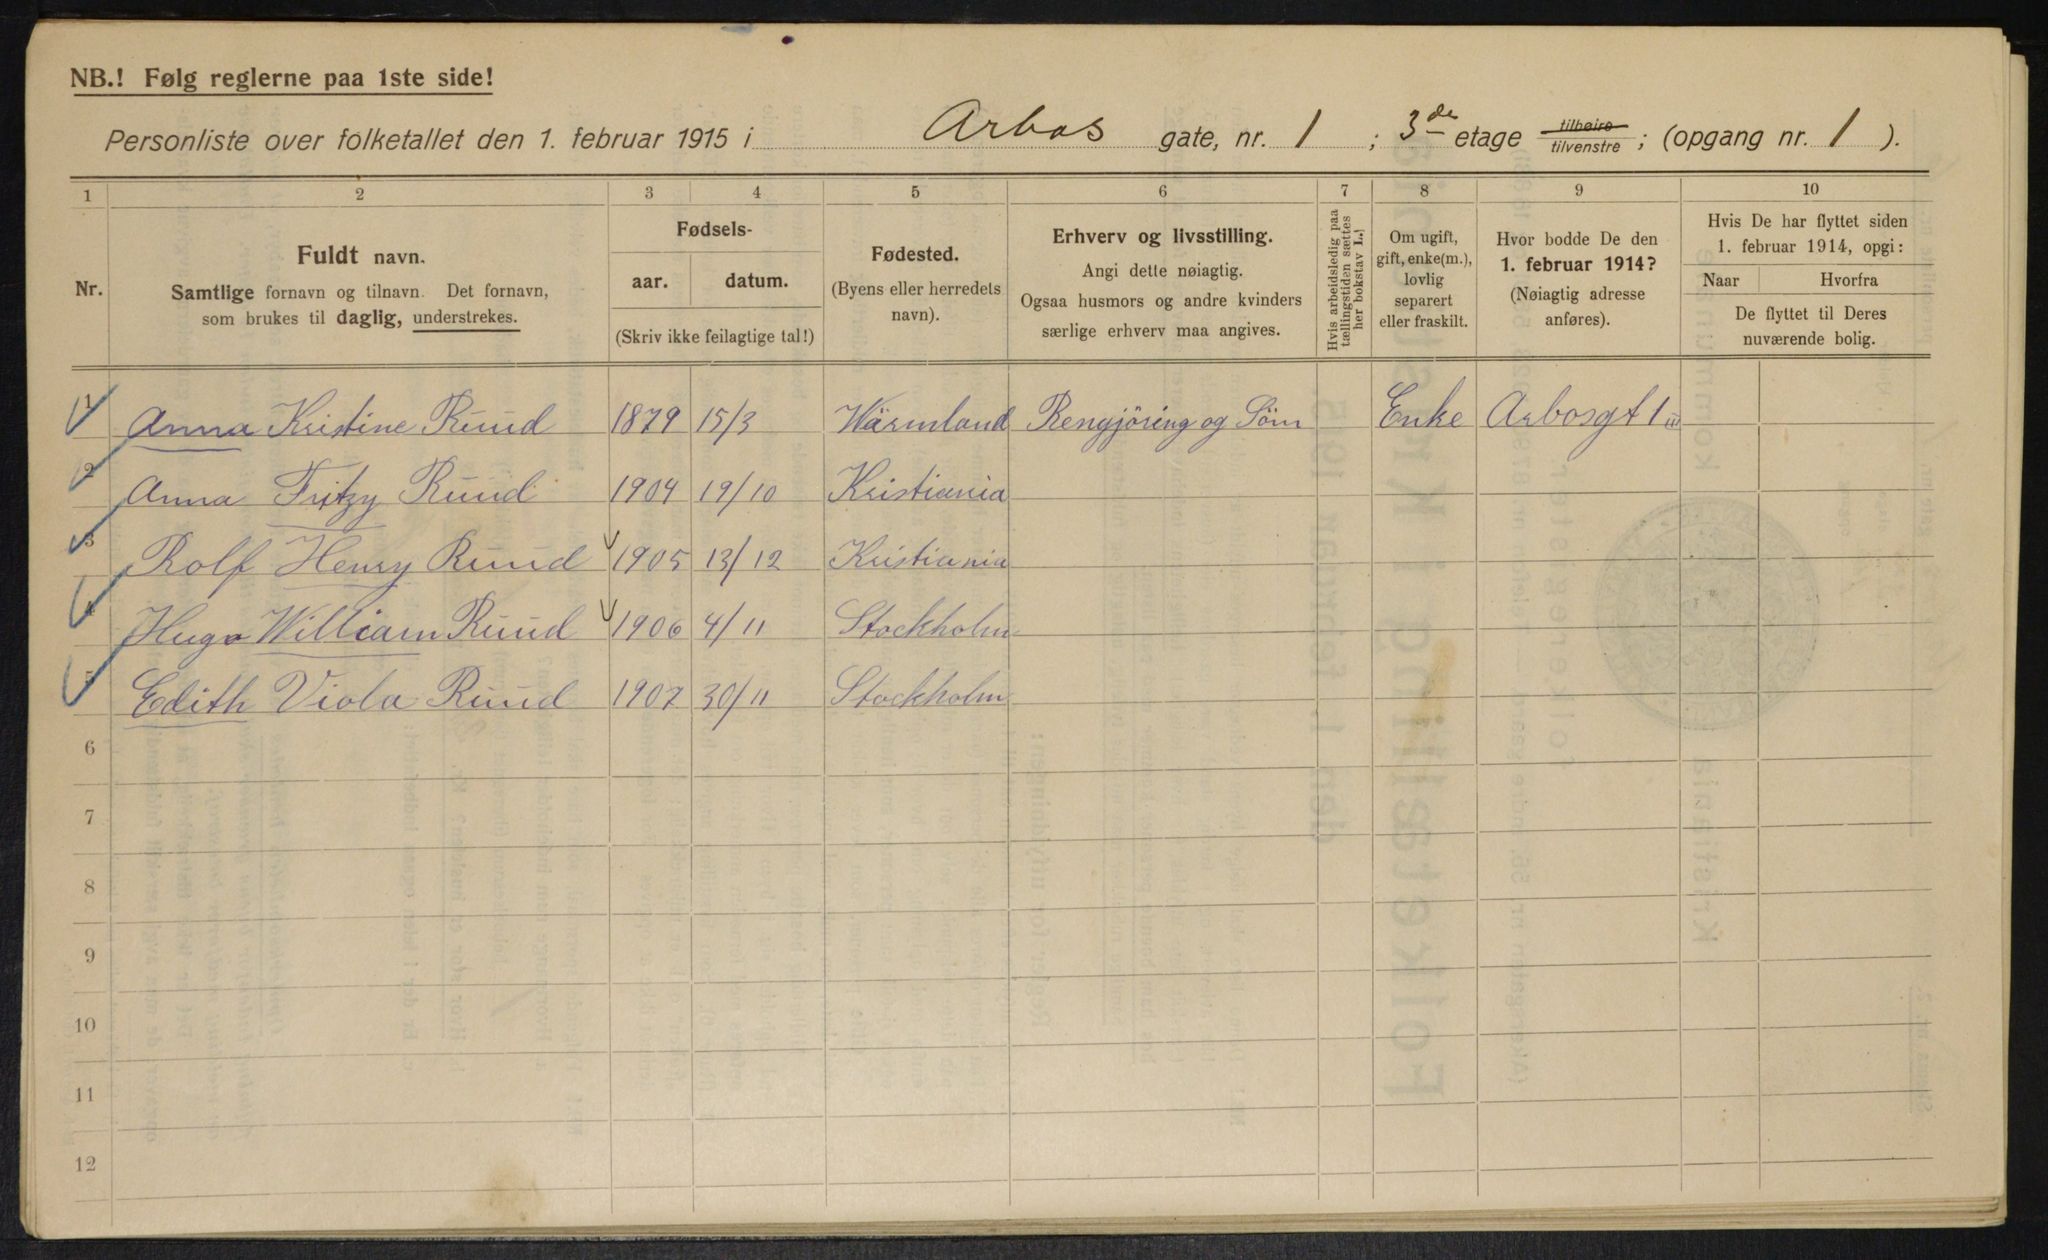 NB.! Følg reglerne paa 1ste side!
Personliste over folketallet den 1. februar 1915 i Arbos gate, nr. 1 ; 3de etage tilhøire tilvenstre ; (opgang nr. 1 ).
1 2 3 4 5 6 7 8 9 10
Nr.
Fuldt navn.
Samtlige fornavn og tilnavn. Det fornavn,
som brukes til daglig, understrekes.
Fødsels-
aar. datum.
(Skriv ikke feilagtige tal!)
Fødested.
(Byens eller herredets
navn).
Erhverv og livsstilling.
Angi dette nøiagtig.
Ogsaa husmors og andre kvinders
særlige erhverv maa angives.
Hvis arbeidsledig paa
tællingstiden sættes
her bokstav L.)
Om ugift,
gift, enke(m.),
lovlig
separert
eller fraskilt.
Hvor bodde De den
1. februar 1914?
(Nøiagtig adresse
anføres).
Hvis De har flyttet siden
1. februar 1914, opgi:
Naar Hvorfra
De flyttet til Deres
nuværende bolig.
1 Anna Kristine Ruud 1879 15/3 Wärmland Rengjöring og Söm Enke Arbosgt 1 III
2 Anna Fritzy Ruud 1904 19/10 Kristiania
3 Rolf Henry Ruud 1905 13/12 Kristiania
4 Hugo William Ruud 1906 4/11 Stockholm
5 Edith Viola Ruud 1907 30/11 Stockholm
6
7
8
9
10
11
12